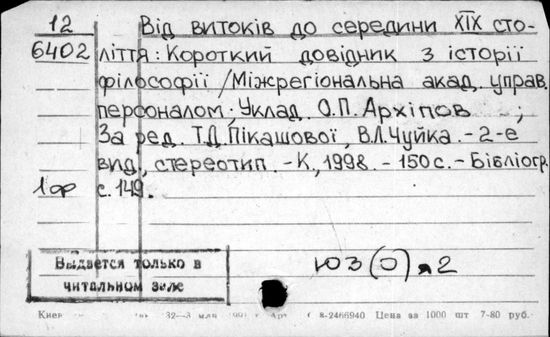 12 Від витоків до середини XIX сто-
6402 ліття: Короткий довідник з історії
філософії / Міжрегіональна акад. управ.
персоналом; Уклад. О.П. Архіпов ;
За ред. Т.Д. Пікашової, В.Л. Чуйка. - 2-е
вид., стереотип. - К., 1998. - 150 с. - Бібліогр.
1 фр с. 149.
Выдается только в
читальном зале
Ю3(0)я2
Киев 32—3 8-2466940 Цена за 1000 шт 7-80 руб.